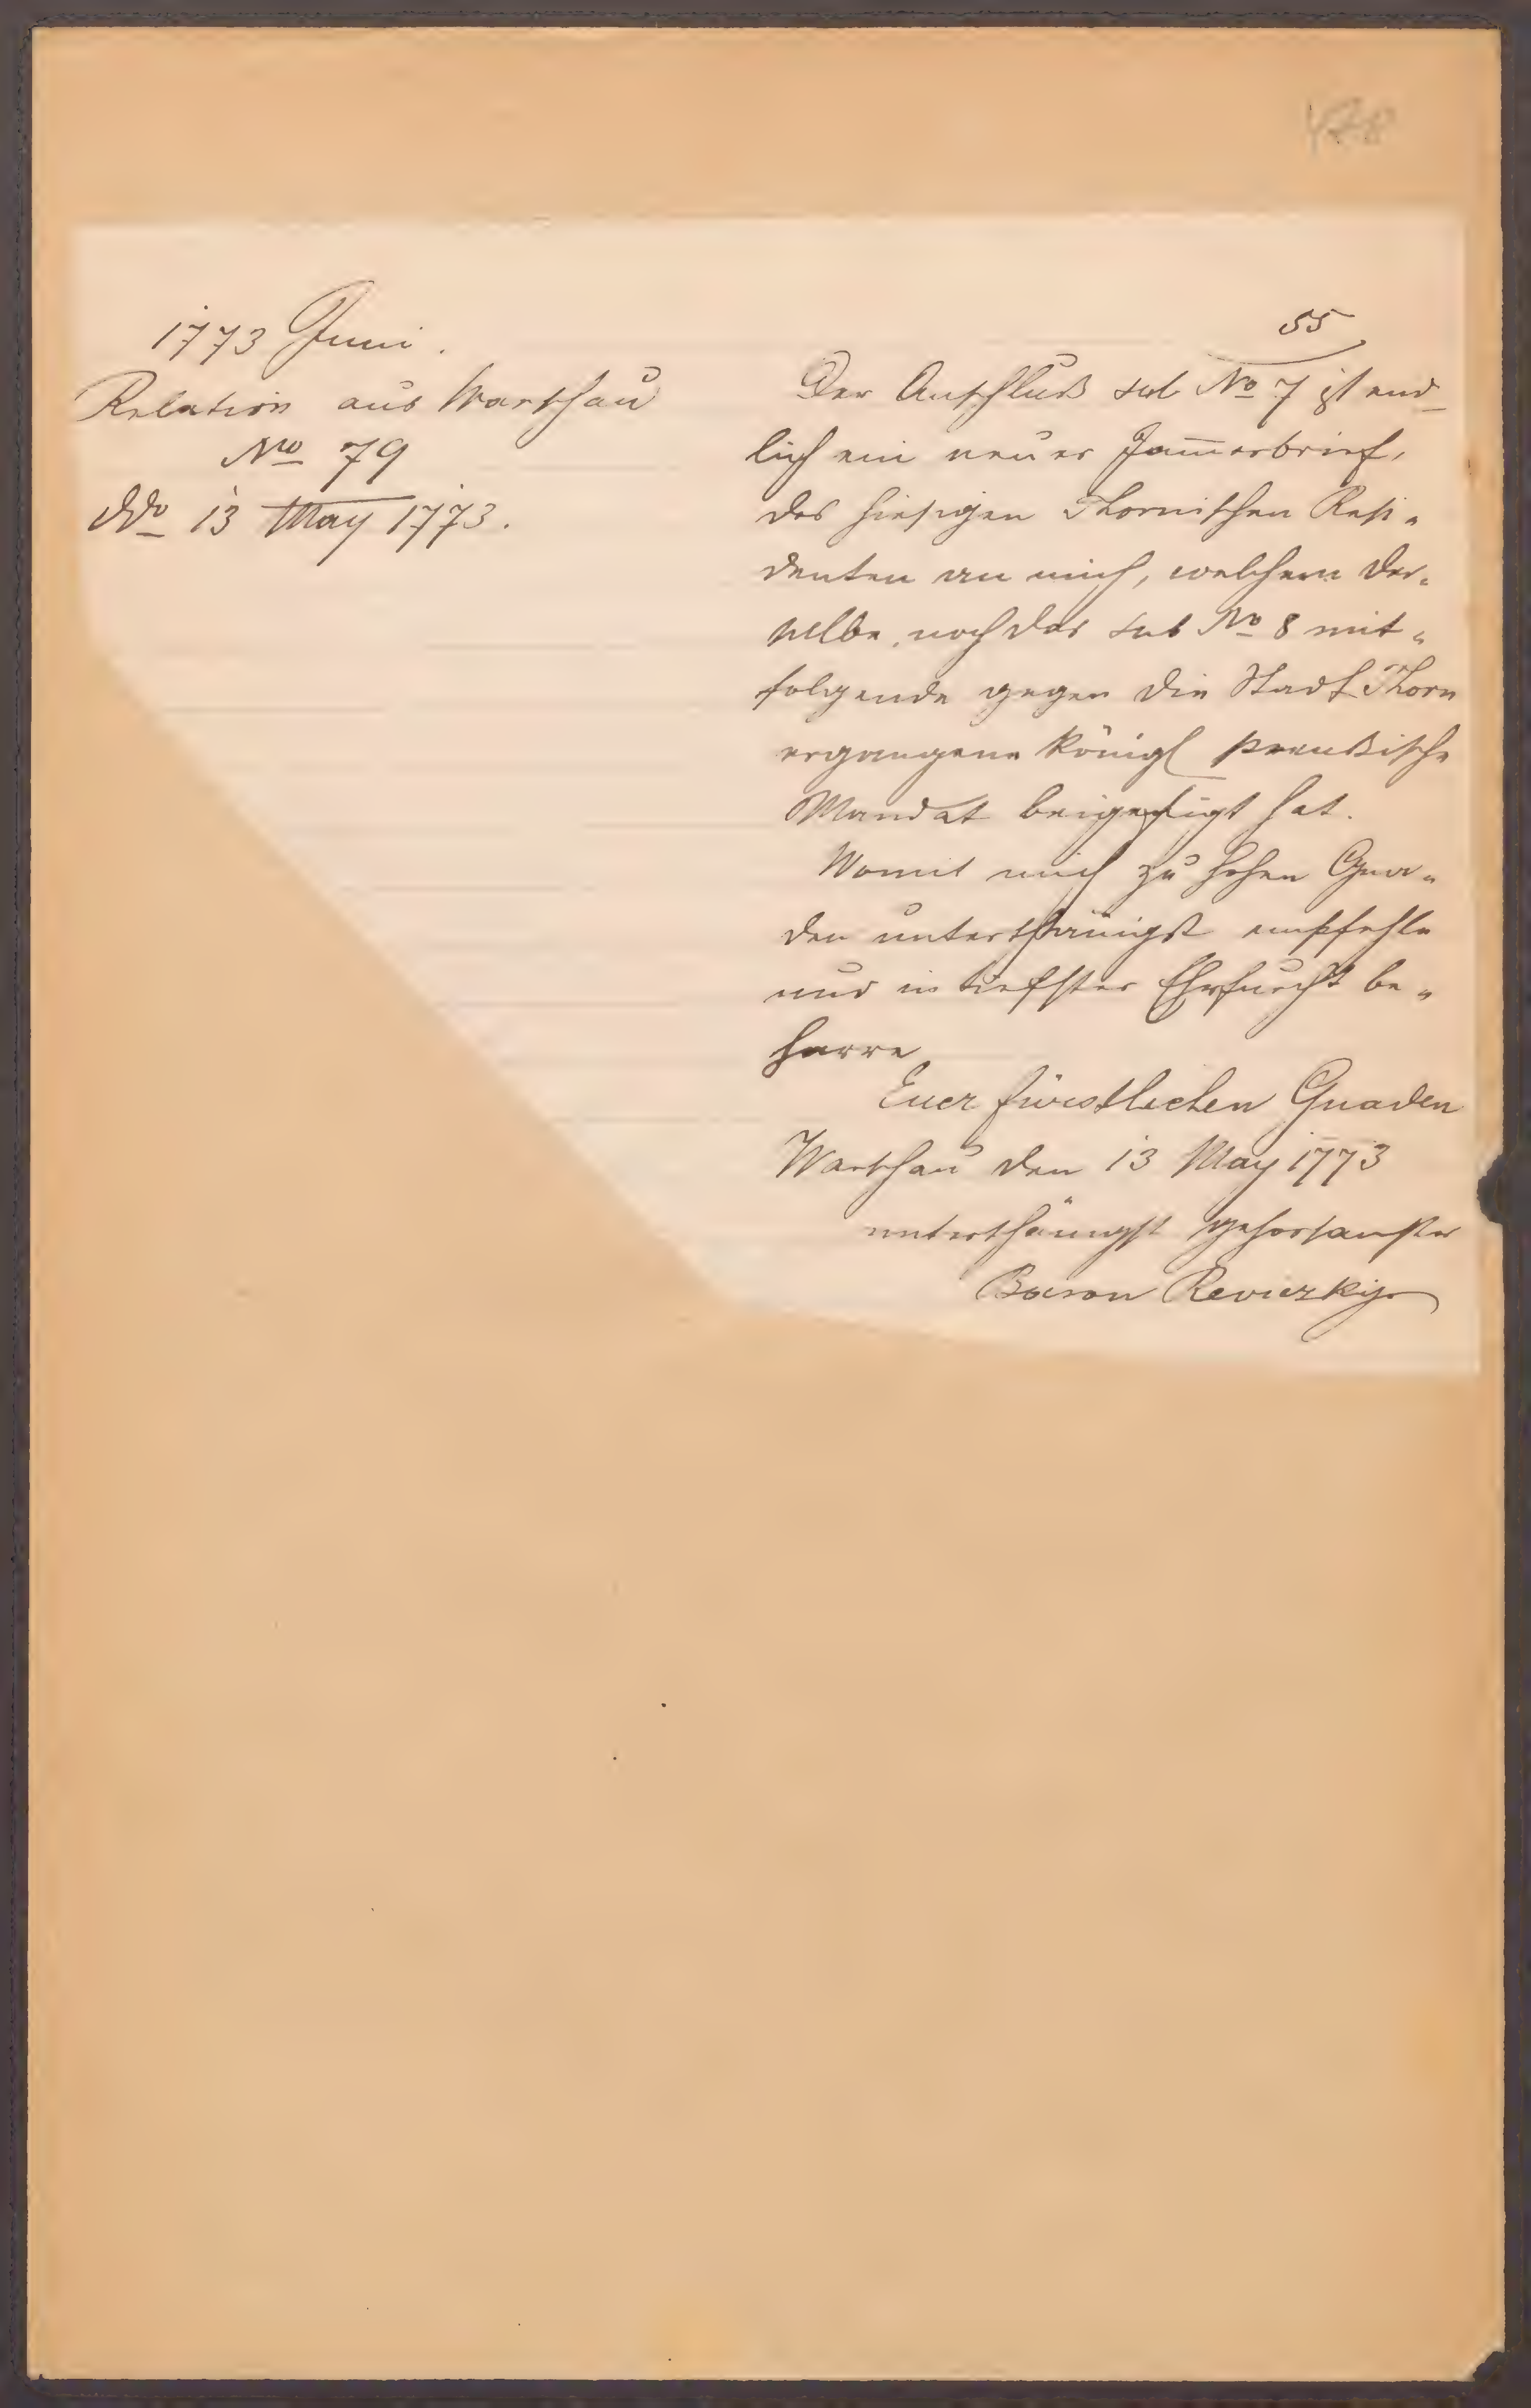 478
1773 Juni.
Relation aus Warschau
No 79
ddo 13 May 1773.
55
Der Anschluß sub No 7 ist end-
lich ein neuer Jam̄erbrief,
des hiesigen Thornischen Resi-
denten an mich, welchem der-
selbe noch das sub No 8 mit-
folgende gegen die Stadt Thorn
ergangene Königl preußische
Mandat beigefügt hat.
Womit mich zu hohen Gna-
den unterthänigst empfehle
und in tiefster Ehrfurcht be-
harre
Euer fürstlichen Gnaden
Warschau den 13 May 1773
unterthänigst gehorsamster
Baron Reviczky